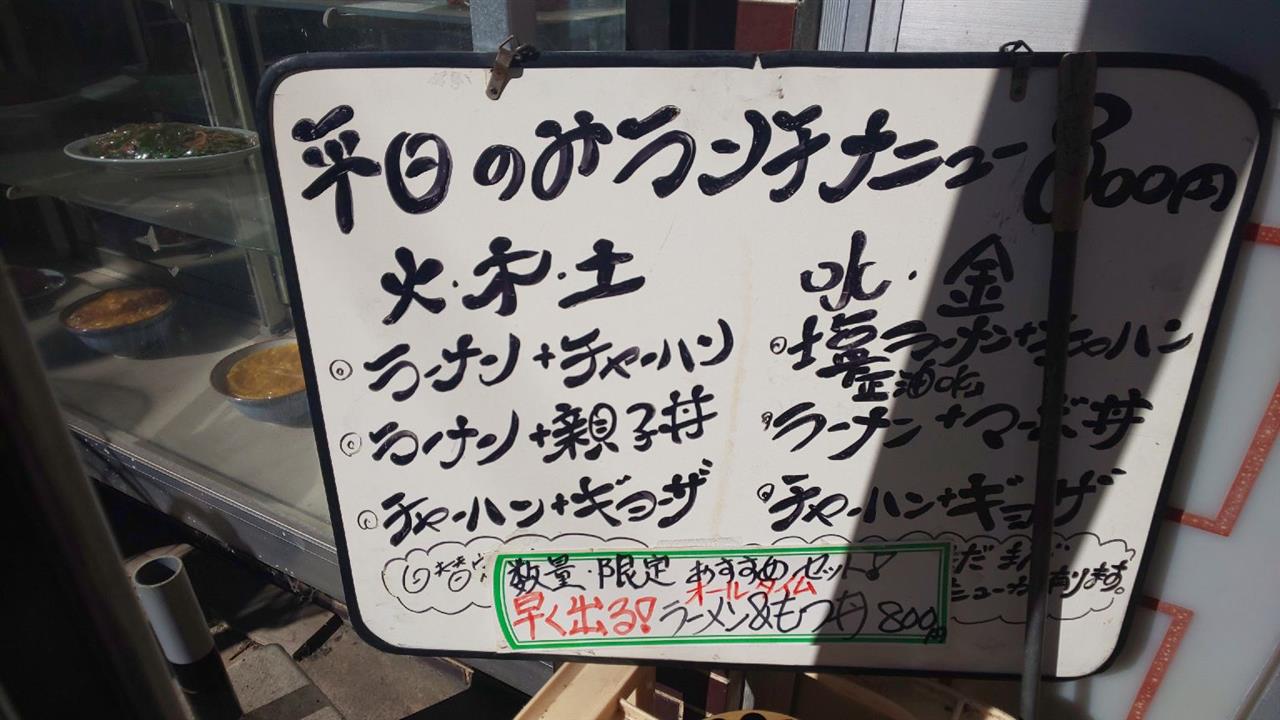 平日のおランチメニュー 800円
火・木・土
◎ラーメン+チャーハン
◎ラーメン+親子丼
◎チャーハン+ギョーザ
水・金
◎塩ラーメン+チャーハン
正油味
◎ラーメン+マーボ丼
◎チャーハン+ギョーザ
日替
まだまだ
メニュー 有ります。
数量・限定 おすすめセット!
早く出る! オールタイム
ラーメン&もつ丼 800円